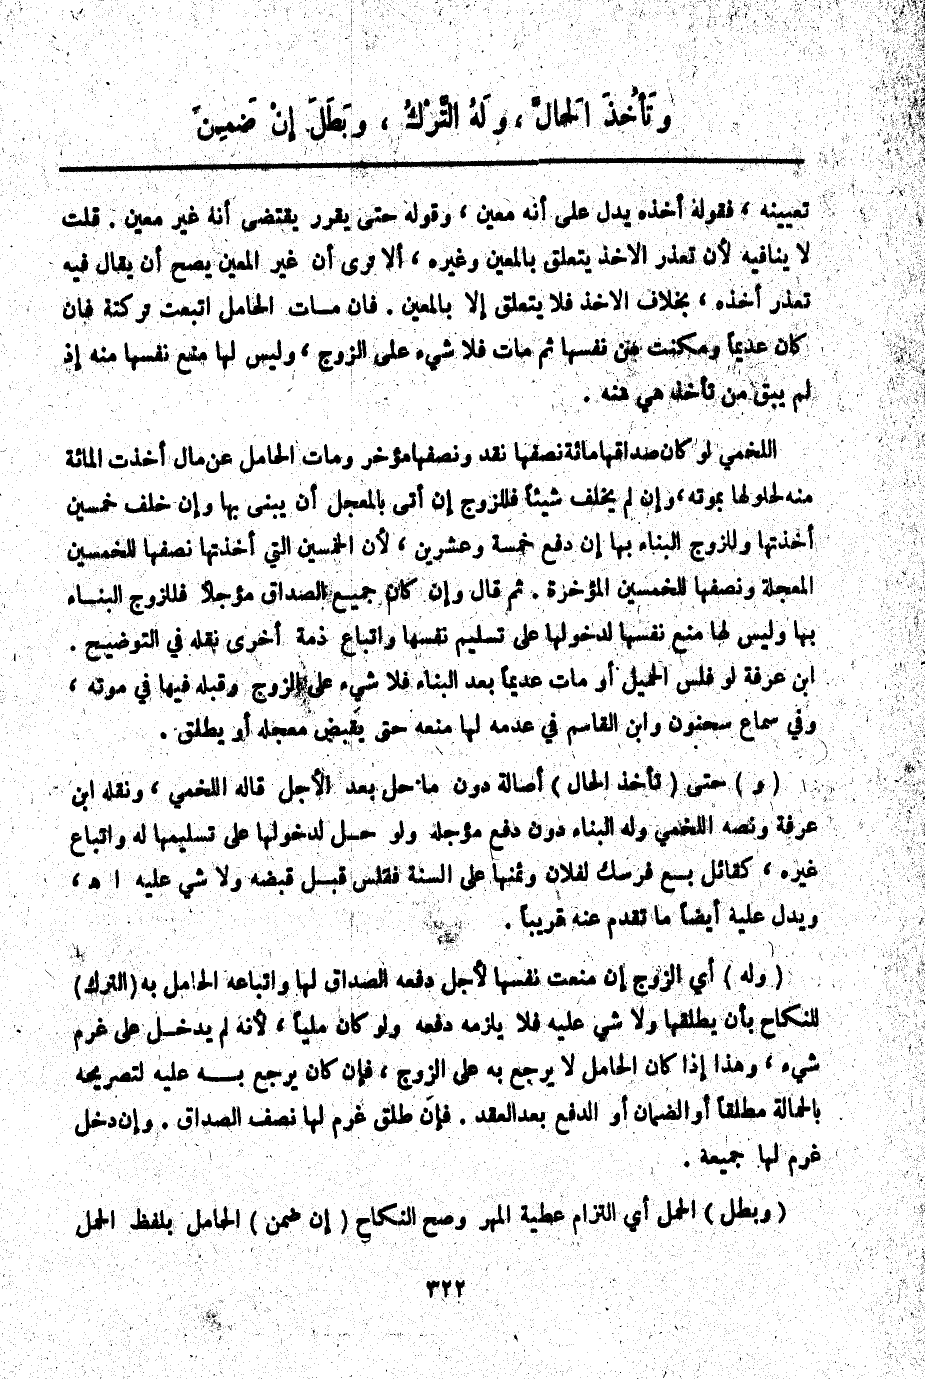 وَتَأْخُذَ الْحَالَّ ، وَلَهُ التَّرْكُ ، وَبَطَلَ إنْ ضَمِنَ
تعيينه ، فقوله أخذه يدل على أنه معين ، وقوله حتى يقرر يقتضى أنه غير معين . قلت
لا ينافيه لأن تعذر الاخذ يتعلق بالمعين وغيره ، ألا ترى أن غير المعين يصح أن يقال فيه
تعذر أخذه ، بخلاف الاخذ فلا يتعلق إلا بالمعين . فان مات الحامل اتبعت تركتة فان
كان عديماً ومكنت من نفسها ثم مات فلا شيء على الزوج ، وليس لها منع نفسها منه إذ
لم يبق من تأخذه هي منه .
اللخمي لو كان صداقها مائة نصفها نقد ونصفها مؤخر ومات الحامل عن مال أخذت المائة
منه لحلولها بموته ، وإن لم يخلف شيئاً فللزوج إن أتى بالمعجل أن يبنى بها وإن خلف خمسين
أخذتها وللزوج البناء بها إن دفع خمسة وعشرين ، لأن الخمسين التي أخذتها نصفها للخمسين
المعجلة ونصفها للخمسين المؤخرة . ثم قال وإن كان جميع الصداق مؤجلاً فللزوج البناء
بها وليس لها منع نفسها لدخولها على تسليم نفسها واتباع ذمة أخرى نقله في التوضيح .
ابن عرفة لو فلس الحميل أو مات عديماً بعد البناء فلا شيء على الزوج وقبله فيها في موته ،
وفي سماع سحنون وابن القاسم في عدمه لها منعه حتى يقبض معجله أو يطلق .
( و ) حتى ( تأخذ الحال ) أصالة دون ما حل بعد الأجل قاله اللخمي ، ونقله ابن
عرفة ونصه اللخمي وله البناء دون دفع مؤجله ولو حل لدخولها على تسليمها له واتباع
غيره ، كقائل بع فرسك لفلان وثمنها على السنة ففلس قبل قبضه ولا شي عليه ا هـ ،
ويدل علية أيضاً ما تقدم عنه قريباً .
( وله ) أي الزوج إن منعت نفسها لأجل دفعه الصداق لها واتباعه الحامل به (الترك)
للنكاح بأن يطلقها ولا شي عليه فلا يلزمه دفعه ولو كان ملياً ، لأنه لم يدخل على غرم
شيء ، وهذا إذا كان الحامل لا يرجع به على الزوج ، فإن كان يرجع به عليه لتصريحه
بالحمالة مطلقاً أو الضمان أو الدفع بعد العقد . فإن طلق غرم لها نصف الصداق . وإن دخل
غرم لها جميعة .
( وبطل ) الحمل أي التزام عطية المهر وصح النكاح ( إن ضمن ) الحامل بلفظ الحمل
٣٢٢